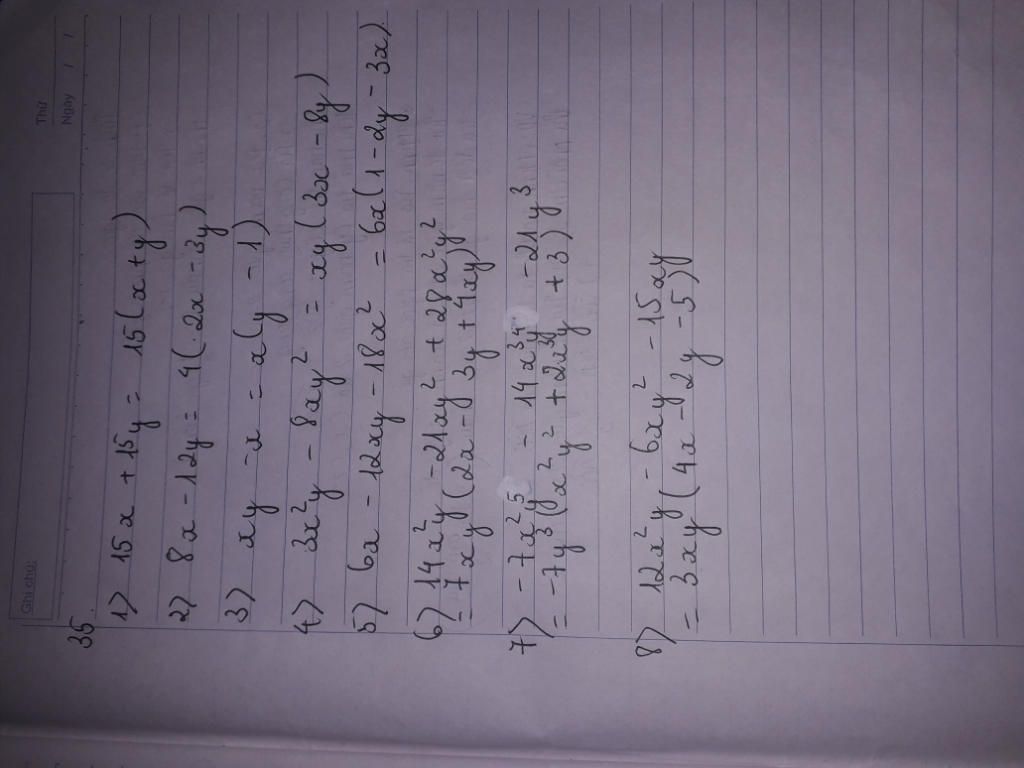 Ghi chú:
Thứ
Ngày / /
35.
1) 15x + 15y = 15(x + y)
2) 8x - 12y = 4(2x - 3y)
3) xy - x = x(y - 1)
4) 3x²y - 8xy² = xy(3x - 8y)
5) 6x - 12xy - 18x² = 6x(1 - 2y - 3x)
6) 14x²y - 21xy² + 28x²y²
= 7xy(2x - 3y + 4xy)
7) - 7x²y⁵ - 14x³y⁴ - 21y³
= -7y³(x²y² + 2x³y + 3)
8) 12x²y - 6xy² - 15xy
= 3xy(4x - 2y - 5)